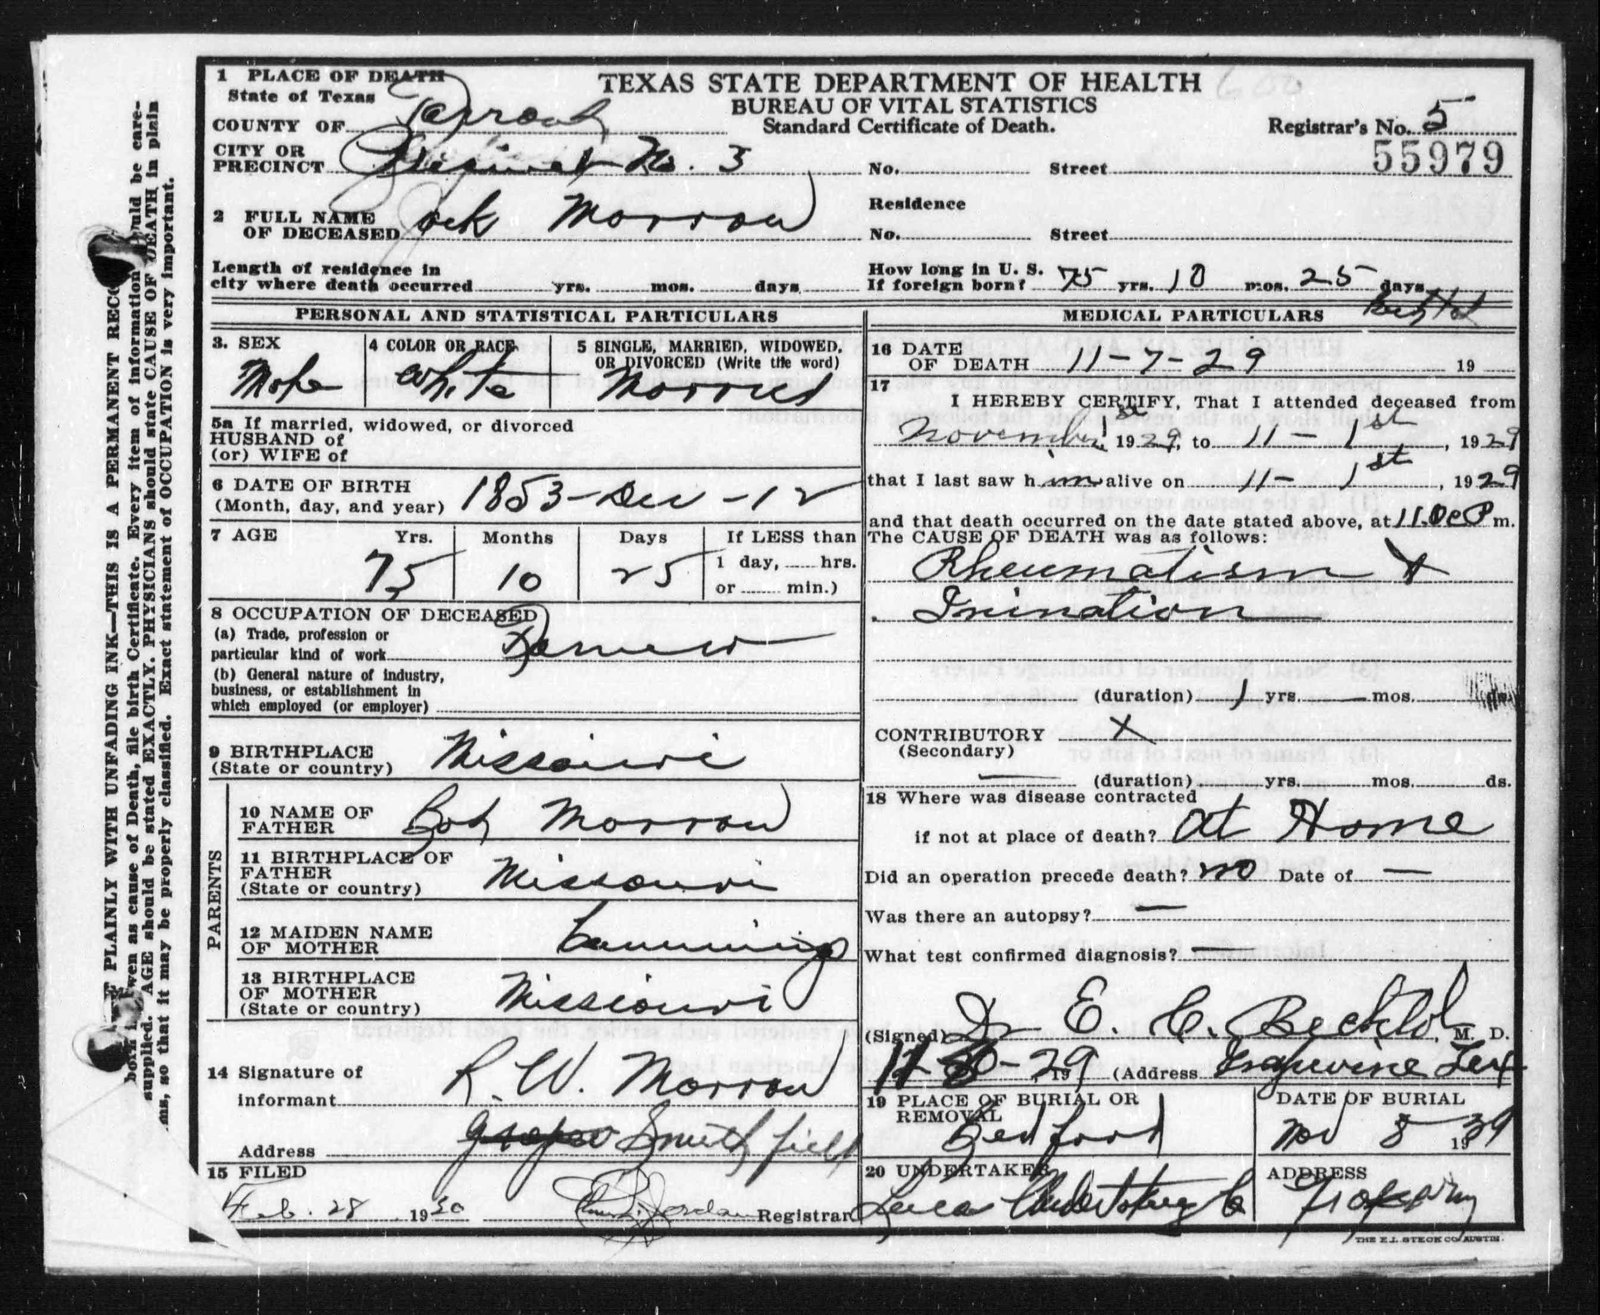 TEXAS STATE DEPARTMENT OF HEALTH
BUREAU OF VITAL STATISTICS
Standard Certificate of Death.
Registrar's No. 5
55979
1 PLACE OF DEATH
State of Texas
COUNTY OF Tarrant
CITY OR
PRECINCT Precinct No. 3
No. Street
2 FULL NAME
OF DECEASED Jack Morrow
Residence
No. Street
Length of residence in
city where death occurred yrs. mos. days
How long in U. S.
If foreign born? 75 yrs. 10 mos. 25 days
PERSONAL AND STATISTICAL PARTICULARS
3. SEX
Male
4 COLOR OR RACE
White
5 SINGLE, MARRIED, WIDOWED,
OR DIVORCED (Write the word)
Married
5a If married, widowed, or divorced
HUSBAND of
(or) WIFE of
6 DATE OF BIRTH
(Month, day, and year) 1853-Dec-12
7 AGE Yrs. Months Days If LESS than
75 10 25 1 day, hrs.
or min.)
8 OCCUPATION OF DECEASED
(a) Trade, profession or
particular kind of work Farmer
(b) General nature of industry,
business, or establishment in
which employed (or employer)
9 BIRTHPLACE
(State or country) Missouri
PARENTS
10 NAME OF
FATHER Bob Morrow
11 BIRTHPLACE OF
FATHER
(State or country) Missouri
12 MAIDEN NAME
OF MOTHER Cummings
13 BIRTHPLACE
OF MOTHER
(State or country) Missouri
14 Signature of
informant R. W. Morrow
Address Smithfield
15 FILED
Feb. 28 1930 Jordan Registrar
MEDICAL PARTICULARS
16 DATE
OF DEATH 11-7-29 19
17
I HEREBY CERTIFY, That I attended deceased from
November 1st 1929, to 11-1st, 1929
that I last saw him alive on 11-1st, 1929
and that death occurred on the date stated above, at 11.00 P m.
The CAUSE OF DEATH was as follows:
Rheumatism &
Inination
(duration) 1 yrs. — mos. ds.
CONTRIBUTORY X
(Secondary)
— (duration) yrs. mos. ds.
18 Where was disease contracted
if not at place of death? at Home
Did an operation precede death? no Date of —
Was there an autopsy? —
What test confirmed diagnosis? —
(Signed) Dr E. C. M. D.
-29 19 (Address Grapevine Tex
19 PLACE OF BURIAL OR
REMOVAL
Bedford
DATE OF BURIAL
Nov 8 19
20 UNDERTAKER
Lucas Co
ADDRESS
THE E.L. STECK CO. AUSTIN.
PLAINLY WITH UNFADING INK—THIS IS A PERMANENT
as cause of Death, file birth Certificate. Every item of information should be care-
supplied. AGE should be stated EXACTLY. PHYSICIANS should state CAUSE OF DEATH in plain
so that it may be properly classified. Exact statement of OCCUPATION is very important.